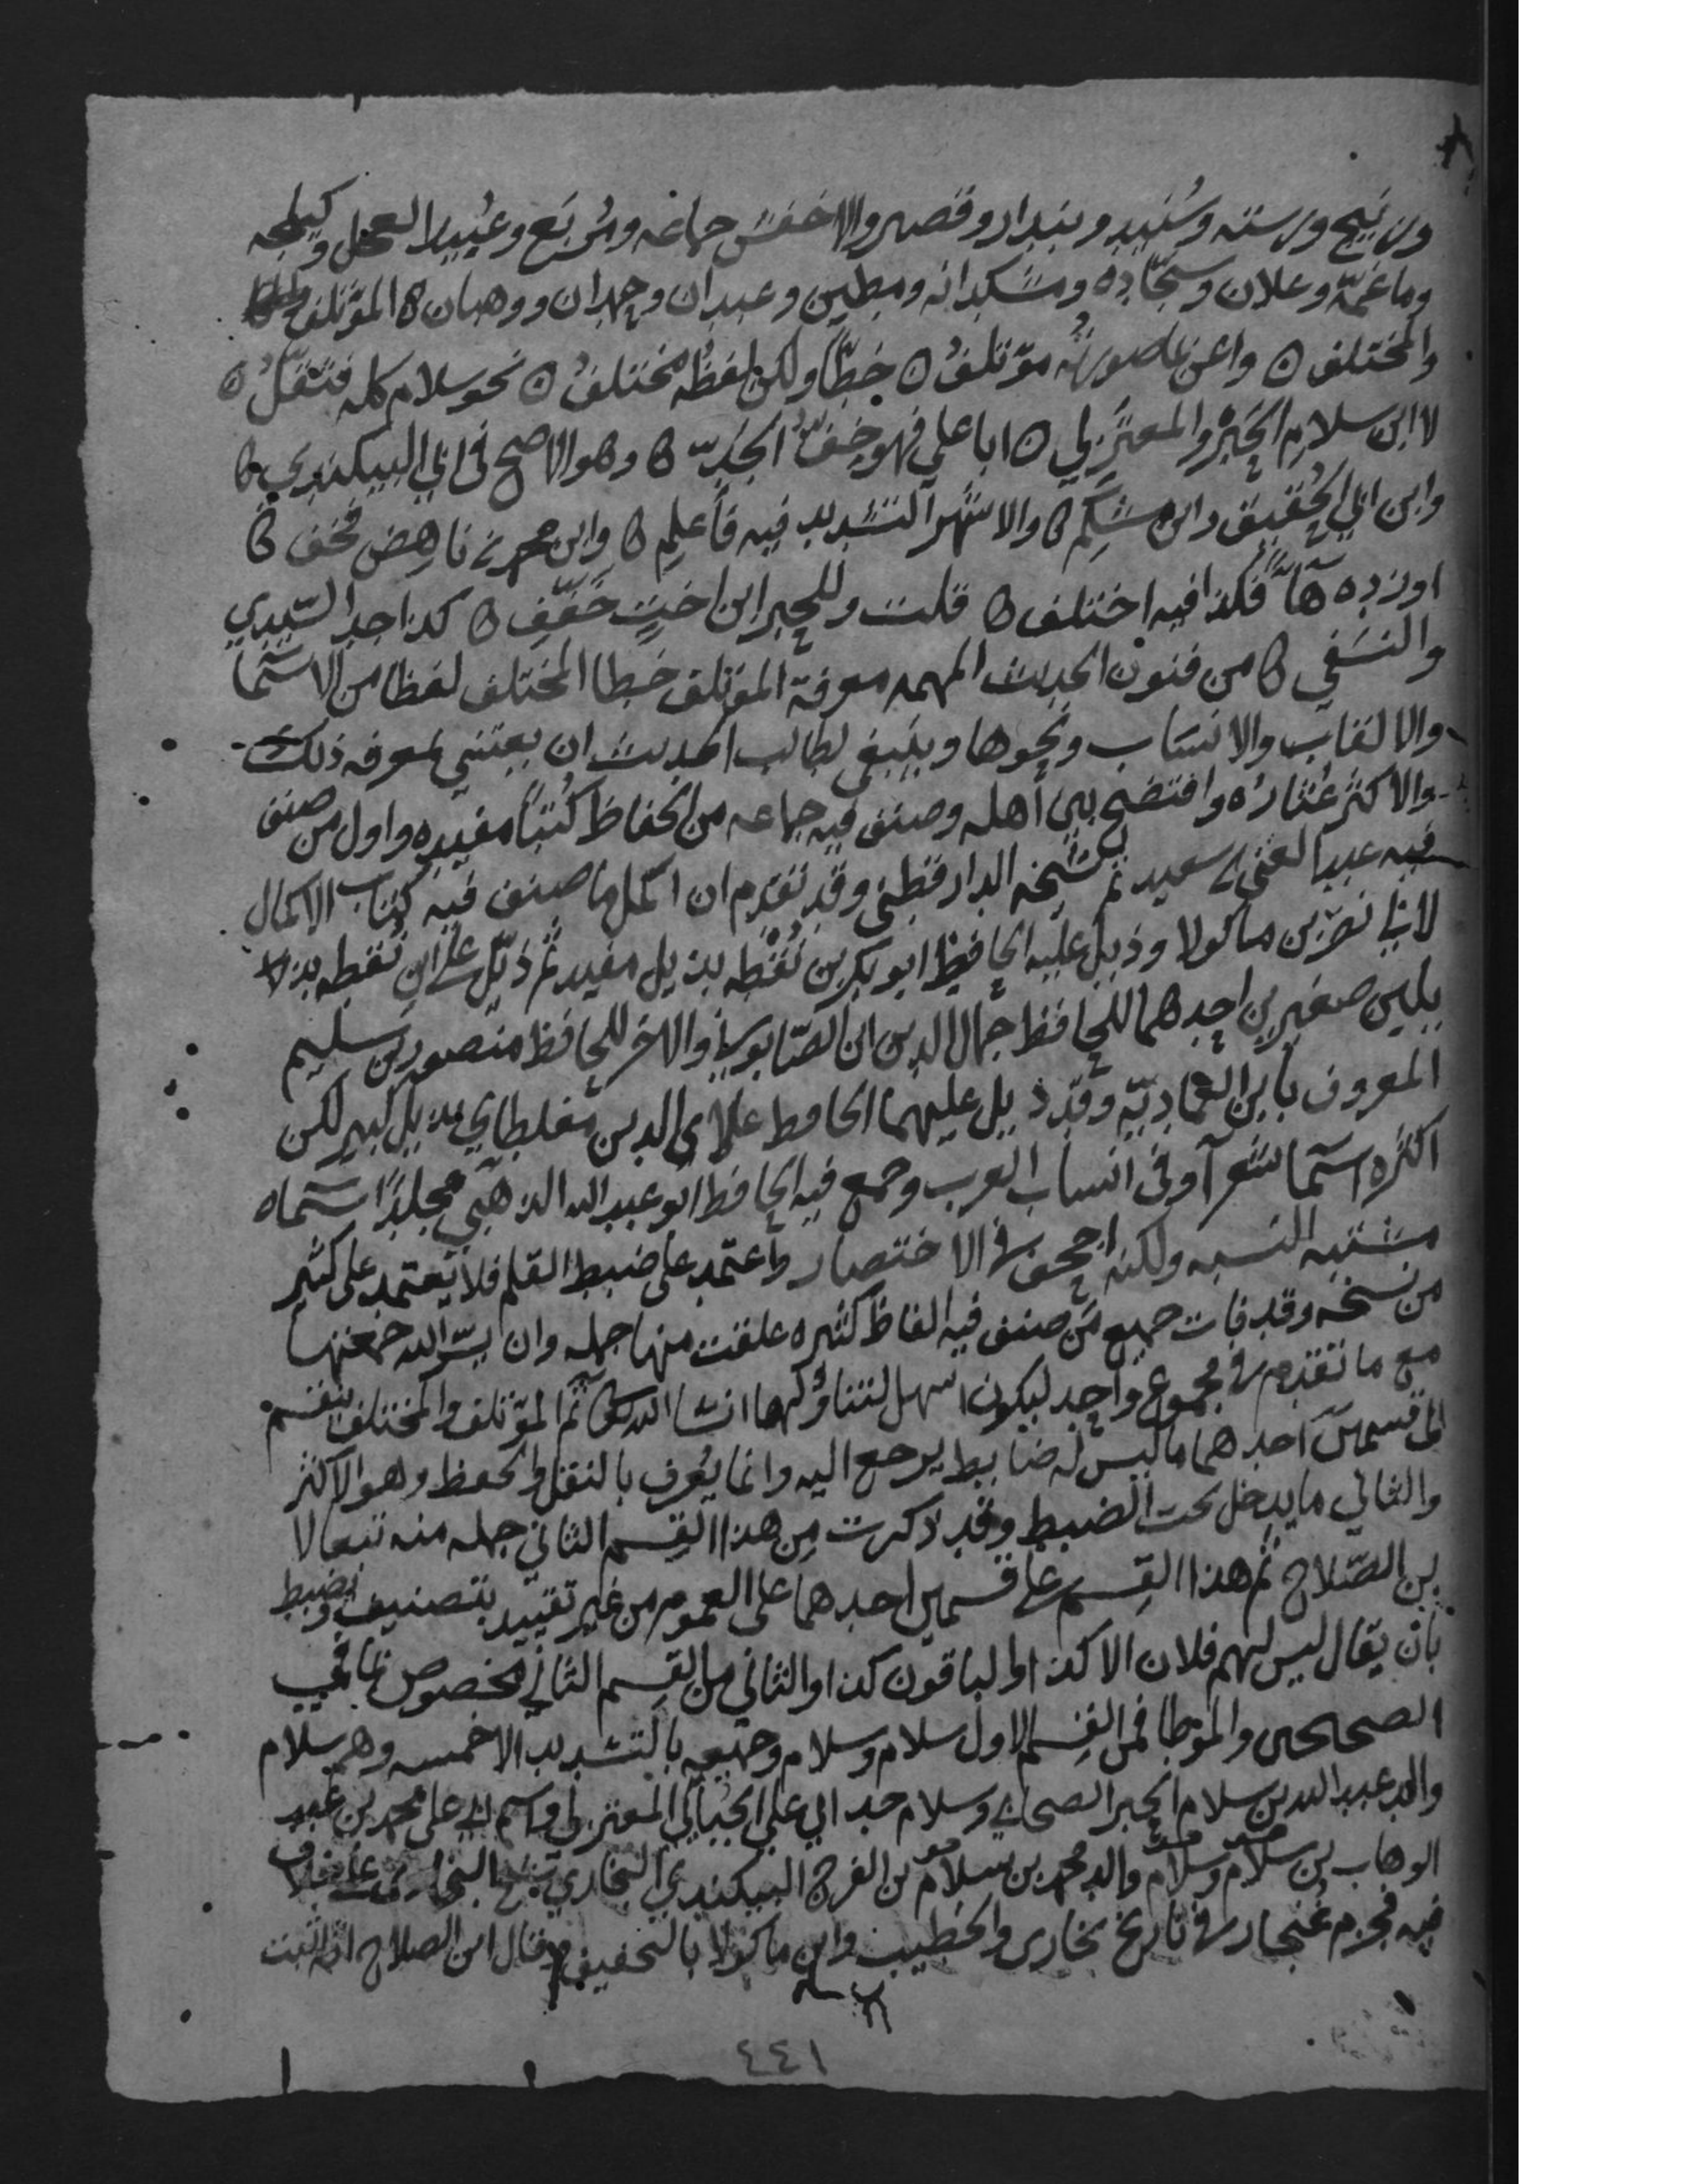 وزنيج ورسته وسنيد وبندار وقصير والاخفش جماعه ومربع وعبيد العجل وكيلجه
وماغمّه وعلان وسجّاده ومشكدانه ومطين وعبدان وحمدان ووهبان ه المؤتلف
والمختلف ه واعن بما صورته مؤتلفُ ه خطًّا ولكن لفظُه مختلفُ ه نحو سلام كله فثقلُ ه
لا ابن سلام الحبرُ والمعتزلي ه ابا علي فهو خفُّ الجدّ ه وهو الاصح في ابي البيكندي ه
وابن ابي الحقيق وابن مشكم ه والاشهر التشديد فيه فاعلم ه وابن محمد بن ناهض فخف ه
اوزده هاً فكذا فيه اختلف ه قلت وللحبر ابن اختٍ خفّف ه كذا جد السيدي
والنسفي ه من فنون الحديث المهمه معرفة المؤتلف خطا المختلف لفظا من الاسما
والالقاب والانساب ونحوها وينبغي لطالب الحديث ان يعتني بمعرفه ذلك
والا كثر عثاره وافتضح بين أهله وصنف فيه جماعه من الحفاظ كُتبًا مفيده واول من صنف
فيه عبد الغني بن سعيد ثم شيخه الدارقطني وقد تقدم ان اكمل ما صنف فيه كتاب الاكمال
لابي نصر بن ماكولا وذيل عليه الحافظ ابو بكر بن نُقْطه بذيل مفيد ثم ذيّل على ابن نُقطه بذ
يلين صغيرين احدهما للحافظ جمال الدين ابن الصّابوني والاخر للحافظ منصور بن سليم
المعروف بابن العماديّه وقد ذيل عليهما الحافظ علاى الدين مغلطاي بذيل كبير لكن
اكثره اسما شعرآ وفى انساب العرب وجمع فيه الحافظ ابو عبد الله الذهبي مجلدًا سماه
مشتبه النسبه ولكنه اجحف في الاختصار واعتمد على ضبط القلم فلا يعتمد على كثير
من نسخه وقد فات جميع من صنف فيه الفاظ كثيره علقت منها جمله وان يسّر الله جمعتها
مع ما تقدم في مجموع واحد ليكون اسهل لتناولها ان شا الله تعالى ثم المؤتلف والمختلف ينقسم
الى قسمين احدهما ما ليس له ضابط يرجع اليه وانما يُعرف بالنقل والحفظ وهو الاكثر
والثاني ما يدخل تحت الضبط وقد ذكرت مِن هذا القِسم الثاني جمله منه تبعا لا
بن الصّلاح ثم هذا القِسم على قسمين احدهما على العموم من غير تقييد بتصنيف ويضبط
بان يقال ليس لهم فلان الا كذا والباقون كذا والثاني من القِسم الثاني مخصوص بما في
الصحيحين والموطا فمن القِسم الاول سلام وسلام وجميعه بالتشديد الا خمسه وهم سلام
والد عبد الله بن سلام الحبر الصحابي وسلام جد ابي علي الجبائي المعتزلي واسم ابي علي محمد بن عبد
الوهاب بن سلام وسلام والد محمد بن سلام بن الفرج البيكندي البخاري شيخ البخاري على خلاف
فيه فجزم غنجار في تاريخ بخارى والخطيب وابن ماكولا بالتخفيف وقال ابن الصلاح انه اثبت
٤٤١